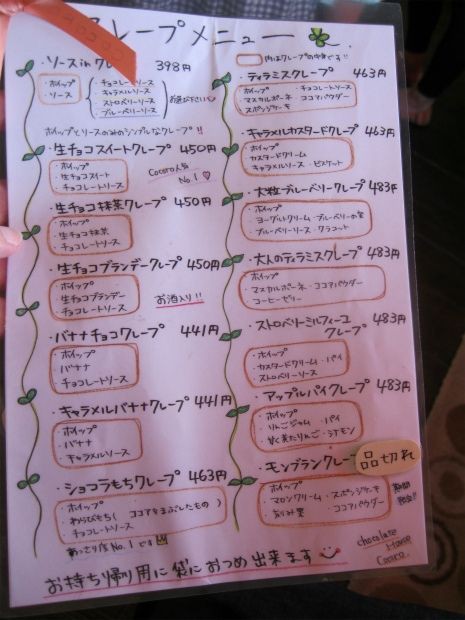 クレープメニュー
・ソース in クレープ 398円
・ホイップ
・ソース
・チョコレートソース
・キャラメルソース
・ストロベリーソース
・ブルーベリーソース
お選び下さい♡
ホイップとソースのみのシンプルなクレープ!!
・生チョコスイートクレープ 450円
・ホイップ
・生チョコスイート
・チョコレートソース
Cocoro人気
No.1♡
・生チョコ抹茶クレープ 450円
・ホイップ
・生チョコ抹茶
・チョコレートソース
・生チョコブランデークレープ 450円
・ホイップ
・生チョコブランデー
・チョコレートソース
お酒入り!!
・バナナチョコクレープ 441円
・ホイップ
・バナナ
・チョコレートソース
・キャラメルバナナクレープ 441円
・ホイップ
・バナナ
・キャラメルソース
・ショコラもちクレープ 463円
・ホイップ
・わらびもち(ココアをまぶしたもの)
・チョコレートソース
あっさり度No.1です
内はクレープの中身です!!
・ティラミスクレープ 463円
・ホイップ ・チョコレートソース
・マスカルポーネ ・ココアパウダー
・スポンジケーキ
・キャラメルカスタードクレープ 463円
・ホイップ
・カスタードクリーム
・キャラメルソース ・ビスケット
・大粒ブルーベリークレープ 483円
・ホイップ
・ヨーグルトクリーム ・ブルーベリーの実
・ブルーベリーソース ・クラコット
・大人のティラミスクレープ 483円
・ホイップ
・マスカルポーネ ・ココアパウダー
・コーヒーゼリー
・ストロベリーミルフィーユ
クレープ 483円
・ホイップ
・カスタードクリーム ・パイ
・ストロベリーソース
・アップルパイクレープ 483円
・ホイップ
・りんごジャム ・パイ
・甘く煮たりんご ・シナモン
・モンブランクレープ 品切れ
・ホイップ
・マロンクリーム ・スポンジケーキ
・ココアパウダー
期間
限定!!
お持ち帰り用に袋におつめ出来ます
chocolate
House
Cocoro.